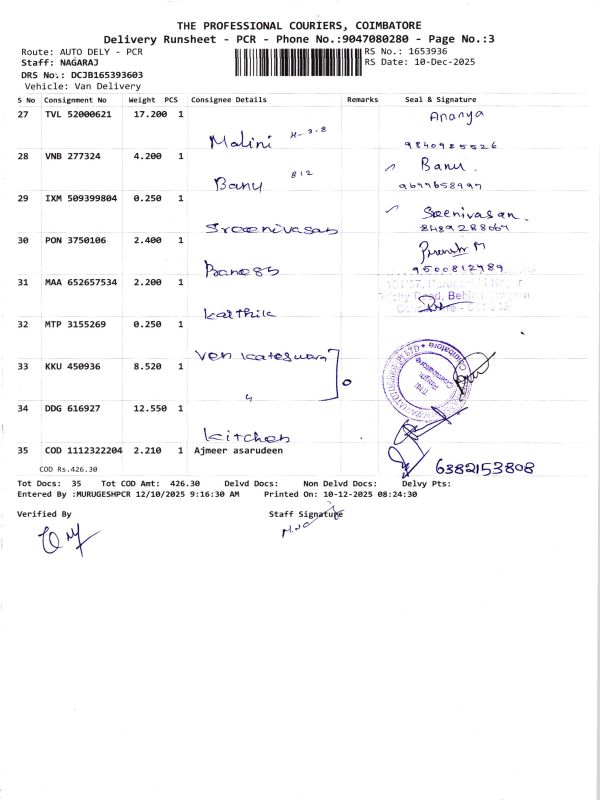 THE PROFESSIONAL COURIERS, COIMBATORE
Delivery Runsheet - PCR - Phone No.:9047080280 - Page No.:3
Route: AUTO DELY - PCR RS No.: 1653936
Staff: NAGARAJ RS Date: 10-Dec-2025
DRS No.: DCJB165393603
Vehicle: Van Delivery
S No Consignment No Weight PCS Consignee Details Remarks Seal & Signature
27 TVL 52000621 17.200 1 Ananya
Malini H-3-8 9840985526
28 VNB 277324 4.200 1 Banu.
Banu B12 9677658997
29 IXM 509399804 0.250 1 Sreenivasan.
Sreenivasan 8489288067
30 PON 3750106 2.400 1
9500812989
31 MAA 652657534 2.200 1
Karthik
32 MTP 3155269 0.250 1
Venkateswara
33 KKU 450936 8.520 1
"
34 DDG 616927 12.550 1
Kitchen
35 COD 1112322204 2.210 1 Ajmeer asarudeen
COD Rs.426.30 6382153808
Tot Docs: 35 Tot COD Amt: 426.30 Delvd Docs: Non Delvd Docs: Delvy Pts:
Entered By :MURUGESHPCR 12/10/2025 9:16:30 AM Printed On: 10-12-2025 08:24:30
Verified By Staff Signature